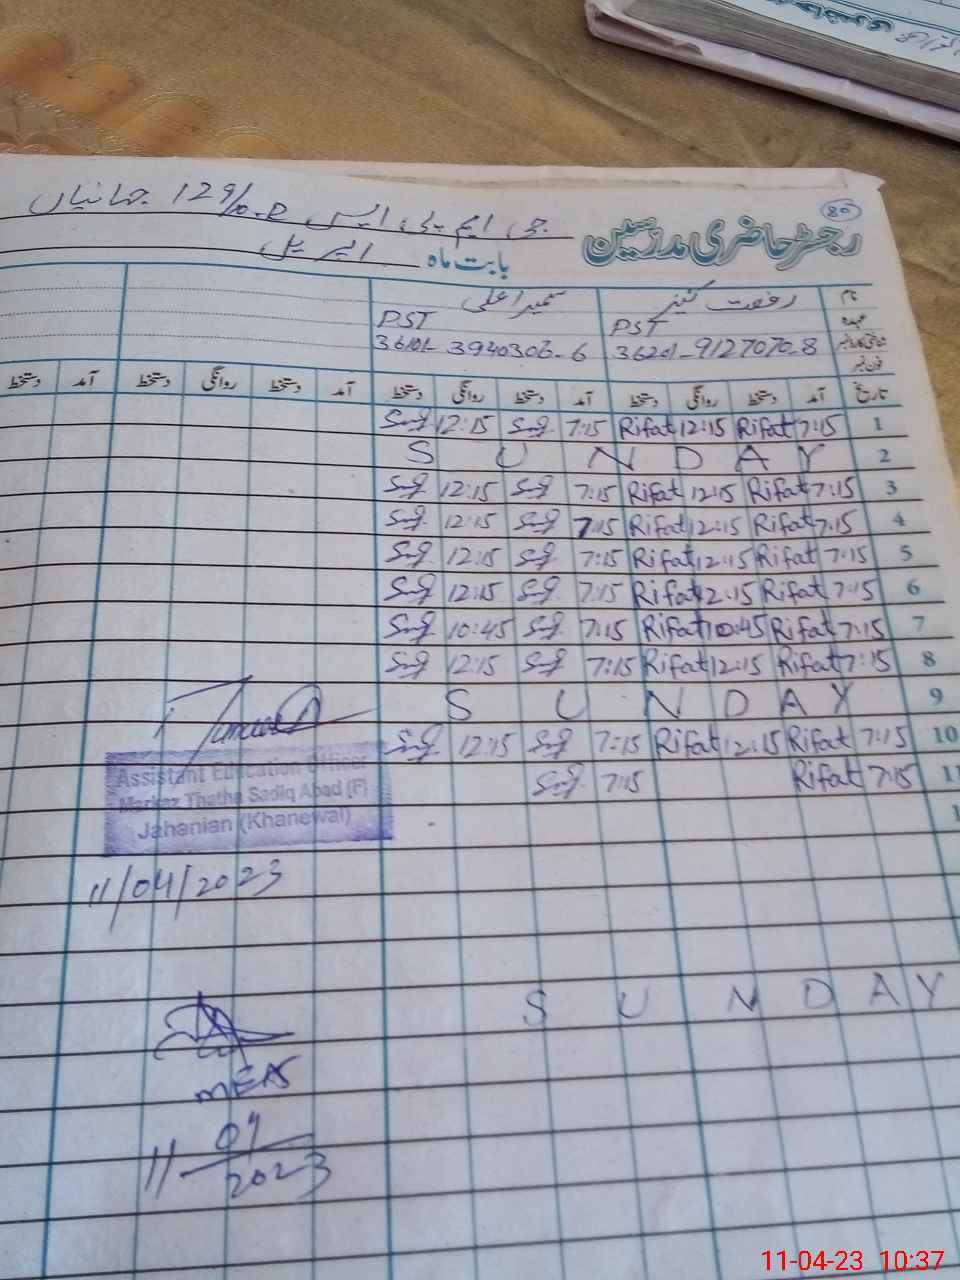 80
رجسٹر حاضری مدرسین
جی ایم پی ایس 129/10-R جہانیاں
بابت ماہ اپریل
نام رفعت کنیز سمیرا علی
عہدہ PST PST
36201-9127070-8 36101-3940306-6
فون نمبر
تاریخ آمد دستخط روانگی دستخط آمد دستخط روانگی دستخط آمد دستخط روانگی دستخط آمد دستخط
12:15 7:15 Rifat 12:15 Rifat 7:15 1
S U N D A Y 2
12:15 7:15 Rifat 12:15 Rifat 7:15 3
12:15 7:15 Rifat 12:15 Rifat 7:15 4
12:15 7:15 Rifat 12:15 Rifat 7:15 5
12:15 7:15 Rifat 12:15 Rifat 7:15 6
10:45 7:15 Rifat 10:45 Rifat 7:15 7
12:15 7:15 Rifat 12:15 Rifat 7:15 8
S U N D A Y 9
12:15 7:15 Rifat 12:15 Rifat 7:15 10
7:15 Rifat 7:15 11
Assistant Education Officer
Markaz Thatha Sadiq Abad (F)
Jahanian (Khanewal)
11/04/2023
S U N D A Y
MEAS
11-04/2023
11-04-23 10:37